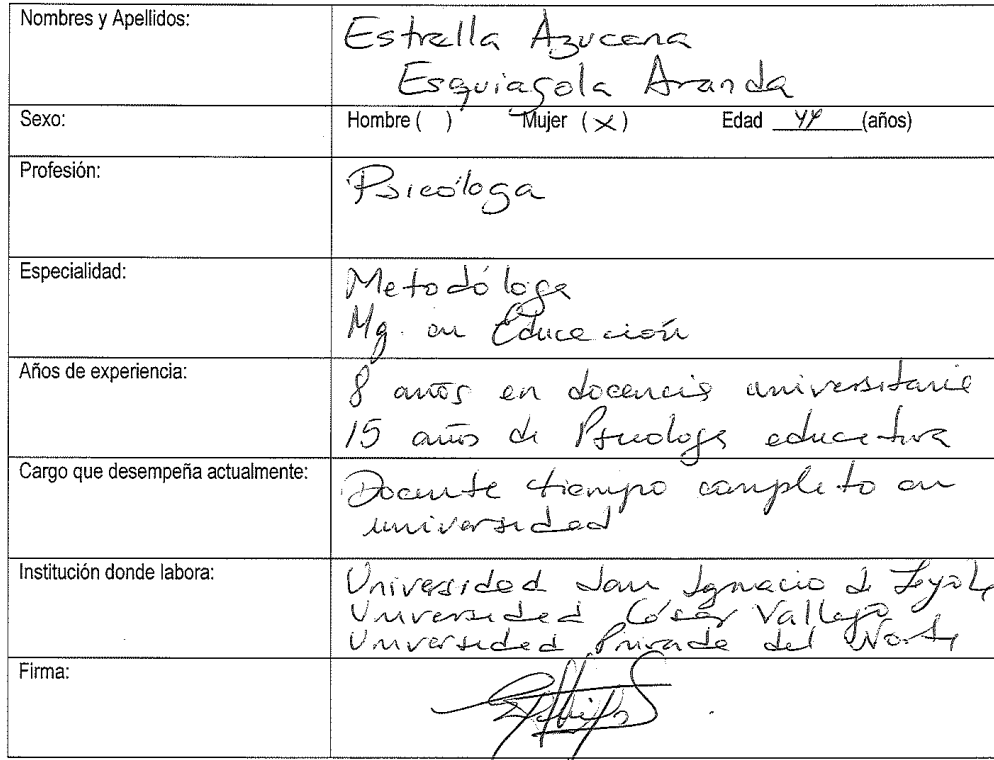 Nombres y Apellidos:
Estrella Azucena
Esquiagola Aranda
Sexo:
Hombre ( ) Mujer (×) Edad 44 (años)
Profesión:
Psicóloga
Especialidad:
Metodóloga
Mg. en Educación
Años de experiencia:
8 años en docencia universitaria
15 años de Psicóloga educativa
Cargo que desempeña actualmente:
Docente tiempo completo en
universidad
Institución donde labora:
Universidad San Ignacio de Loyola
Universidad César Vallejo
Universidad Privada del Norte
Firma: